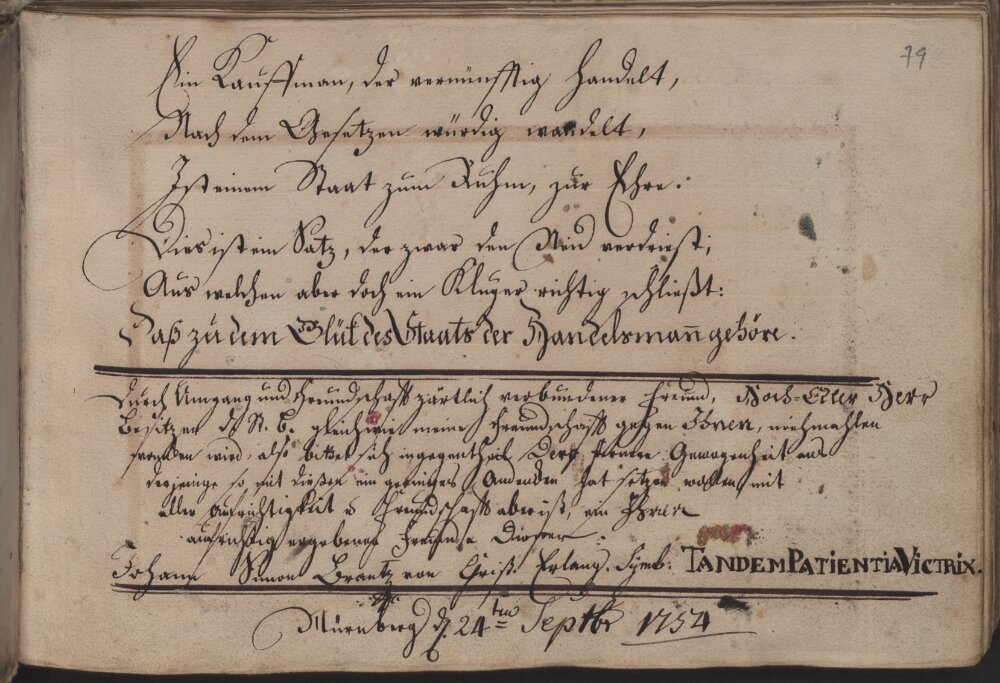 79
Ein Kauffman, der vernünfftig handelt,
Nach dem Gesetzen würdig wandelt,
Ist einem Staat zum Ruhm, zur Ehre.
Dies ist ein Satz, der zwar den Neid verdriest;
Aus welchen aber doch ein Kluger richtig schließt:
Daß zu dem Glük des Staats der Handelsmann gehöre.
Durch Umgang und Freundschafft zärtlich verbundener Freund, Hoch-Edler Herr
Besitzer ds St. B. gleichwie meine Freundschafft gegen Ihnen, niehmahlen
wird, also bittet sich ingegentheil Dero fernere Gewogenheit aus
derjenige so mit diesen ein geringes Andenken hat setzen wollen mit
aller Aufrichtigkeit u Freundschafft aber ist, ein Ihnen
aufrichtig ergebener Freund u Diener.
Johann Simon Brantz von Christ. Erlang. Symb: TANDEM PATIENTIA VICTRIX.
Nürnberg d. 24ten Septbr 1754